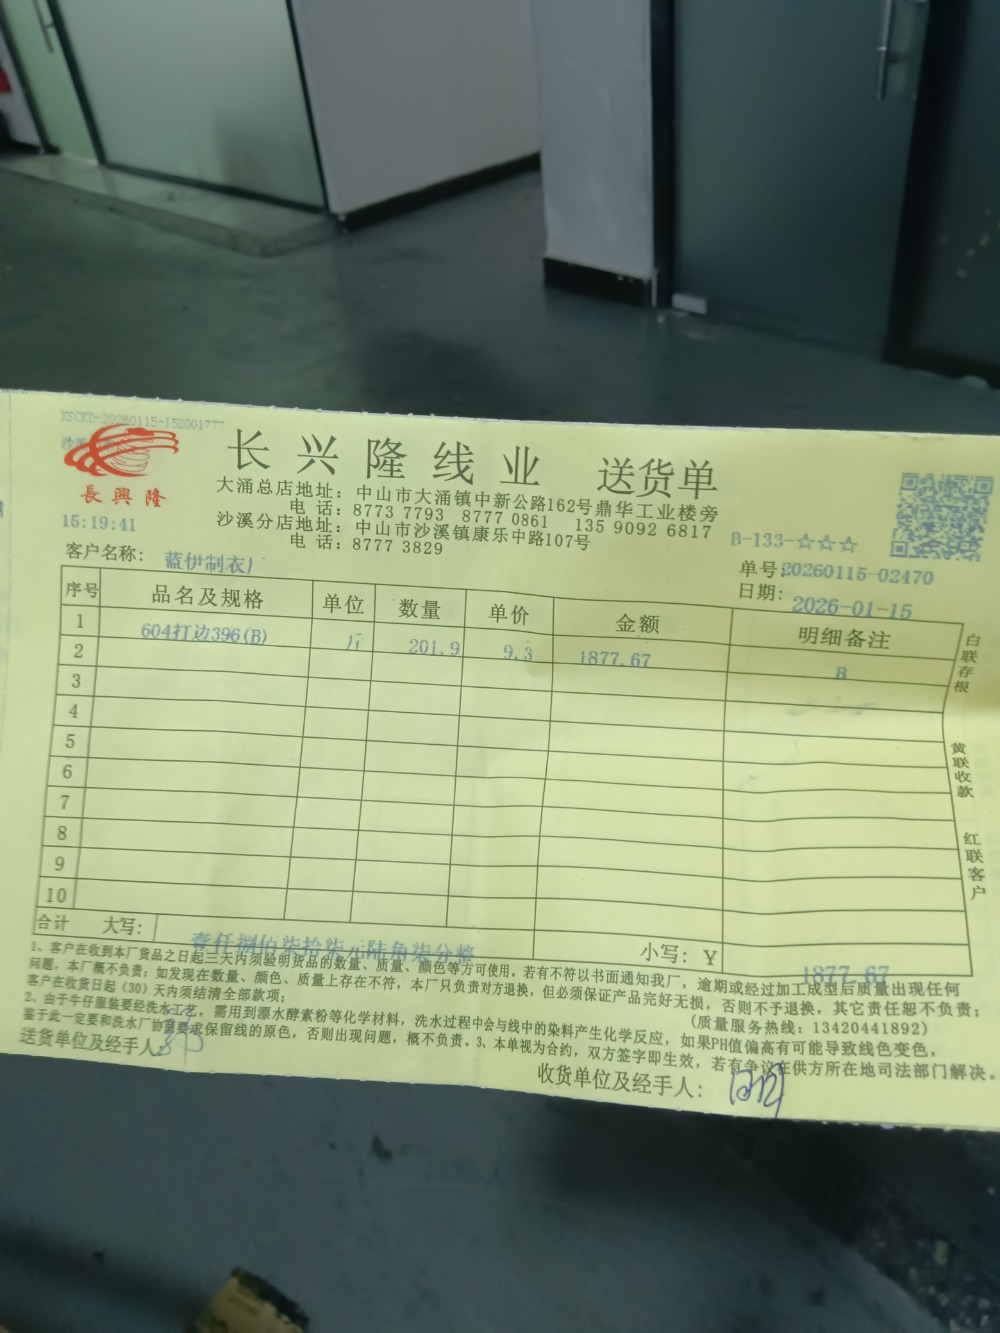 XSCKD-20260115-152001777
長興隆
15:19:41
长兴隆线业 送货单
大涌总店地址：中山市大涌镇中新公路162号鼎华工业楼旁
电 话：8773 7793 8777 0861 135 9092 6817
沙溪分店地址：中山市沙溪镇康乐中路107号
电 话：8777 3829
B-133-☆☆☆
客户名称：蓝伊制衣厂
单号：20260115-02470
日期：2026-01-15
序号 品名及规格 单位 数量 单价 金额 明细备注
1 604打边396(B) 斤 201.9 9.3 1877.67 B
2
3
4
5
6
7
8
9
10
合计 大写：壹仟捌佰柒拾柒元陆角柒分整 小写：Y 1877.67
白联存根
黄联收款
红联客户
1、客户在收到本厂货品之日起三天内须验明货品的数量、质量、颜色等方可使用。若有不符以书面通知我厂，逾期或经过加工成型后质量出现任何
问题，本厂概不负责；如发现在数量、颜色、质量上存在不符，本厂只负责对方退换，但必须保证产品完好无损，否则不予退换，其它责任恕不负责；
客户在收货日起（30）天内须结清全部款项； (质量服务热线：13420441892)
2、由于牛仔服装要经洗水工艺，需用到漂水酵素粉等化学材料，洗水过程中会与线中的染料产生化学反应，如果PH值偏高有可能导致线色变色，
鉴于此一定要和洗水厂协商要求保留线的原色，否则出现问题，概不负责。3、本单视为合约，双方签字即生效，若有争议在供方所在地司法部门解决。
送货单位及经手人：
收货单位及经手人：